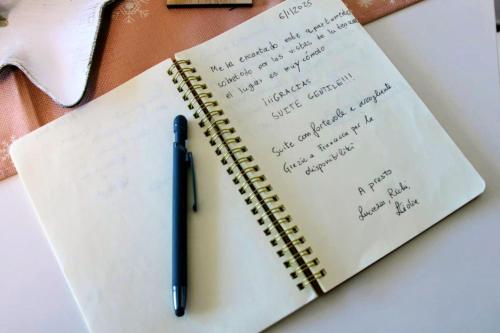 6/1/2025
Me ha encantado este apartamento
sobretodo por las vistas de la terraza
el lugar es muy cómodo
¡¡¡GRACIAS
SUITE GENTILE!!!
Suite confortevole e accogliente
Grazie a Francesca per la
disponibilità
A presto
Lucrezia,